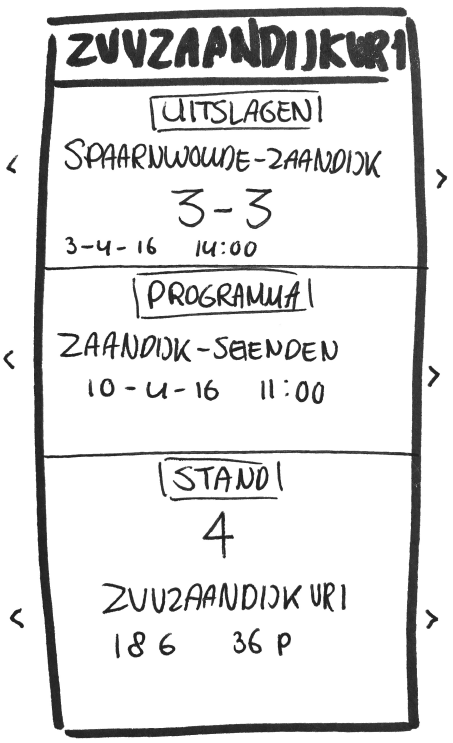 ZVVZAANDIJKVR1
UITSLAGEN
SPAARNWOUDE-ZAANDIJK
3-3
3-4-16 14:00
PROGRAMMA
ZAANDIJK-SEENDEN
10-4-16 11:00
STAND
4
ZVVZAANDIJK VR1
18 6 36 P